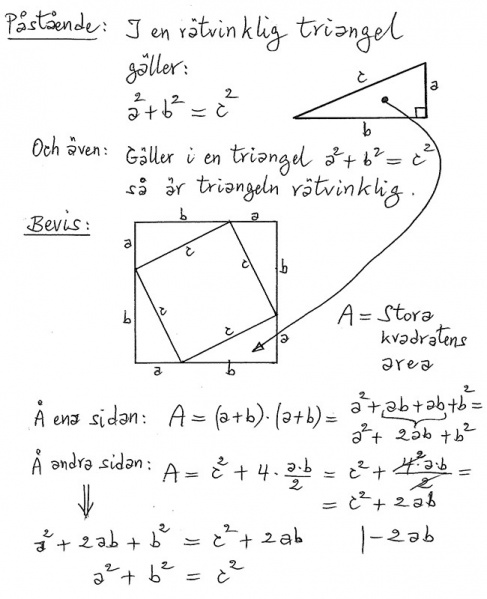 Påstående: I en rätvinklig triangel
gäller:
a² + b² = c²
c
a
b
Och även: Gäller i en triangel a² + b² = c²
så är triangeln rätvinklig.
Bevis:
b a
a c
c b
b c
c a
a b
A = Stora
kvadratens
area
Å ena sidan: A = (a+b)·(a+b) = a² + ab + ab + b² =
a² + 2ab + b²
Å andra sidan: A = c² + 4 · a·b/2 = c² + 4² a·b/2 =
= c² + 2ab
⇓
a² + 2ab + b² = c² + 2ab |−2ab
a² + b² = c²